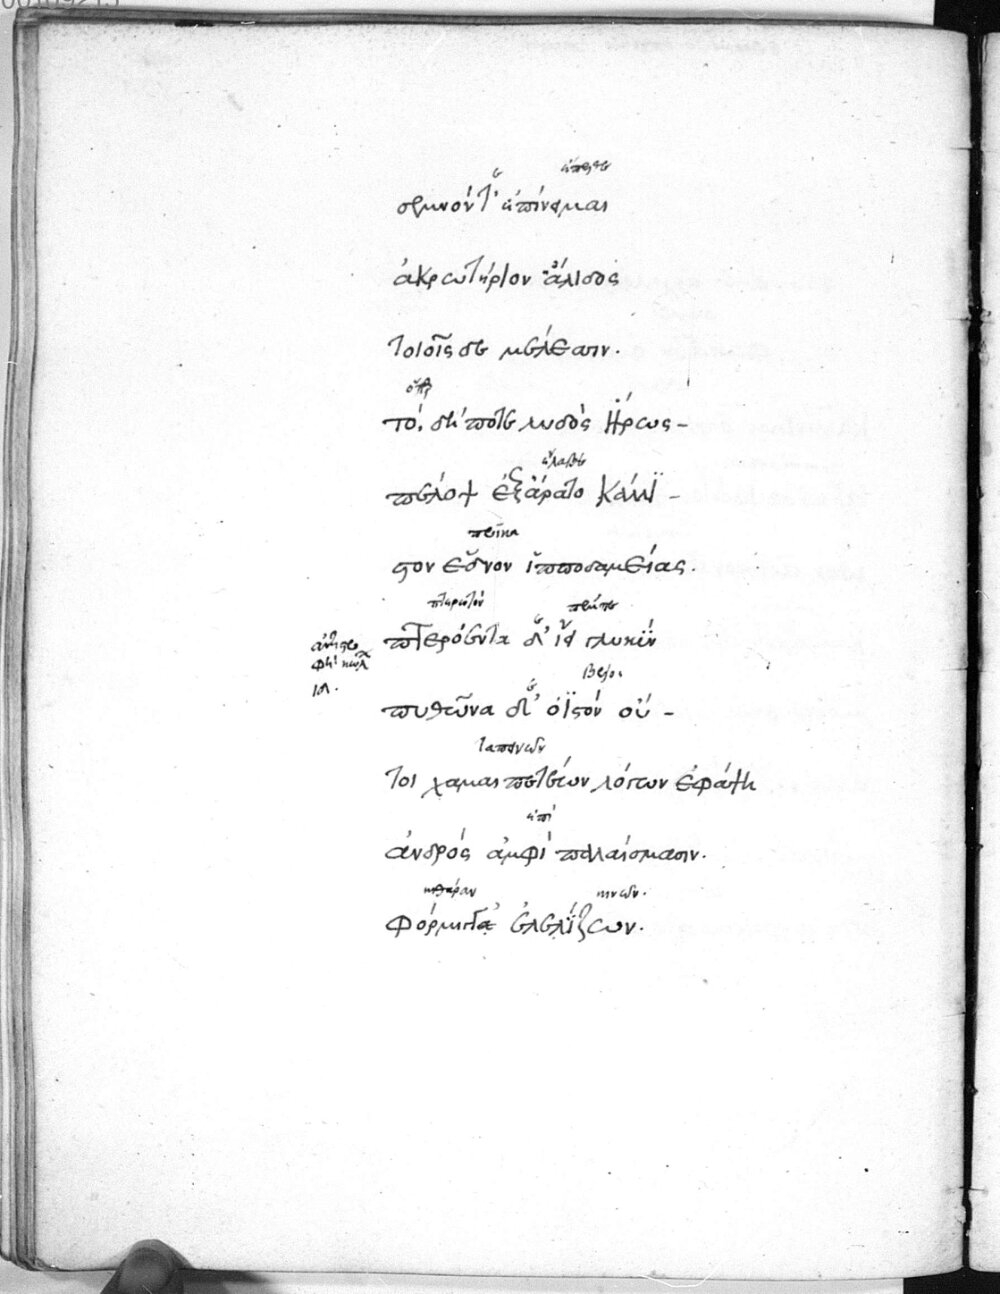 ἐπερχε
σεμνόν τ' ἐπίνειμαι
ἀκρωτήριον ἄλιδος
τοιοῖςδε μέλεσσιν.
ὅπερ
τὸ, δή ποτε λυδὸς ἥρως-
ἔλαβε
πέλοψ ἐξάρατο κάλλι-
προῖκα
στον ἕδνον ἱπποδαμείας.
πτερωτὸν πέμπε
πτερόεντα δ' ἵει γλυκὺν
ἀντιστρο
φῆς κώλα
ια.
βέλος
πυθῶνα δ' ὀϊστόν οὔ-
ταπεινῶν
τοι χαμαιπετέων λόγων ἐφάψη
ἐπὶ
ἀνδρός ἀμφὶ παλαίσμασιν.
κιθάραν κινῶν.
φόρμιγγα ἐλελίζων.